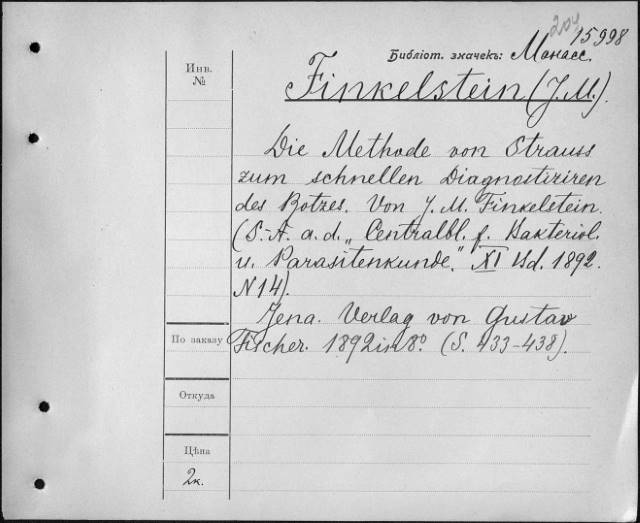 204
15998
Библіот. значекъ: Манасс.
Инв.
№
Finkelstein (J. M.).
Die Methode von Strauss
zum schnellen Diagnostiziren
des Rotzes. Von J. M. Finkelstein.
(S.-A. a. d. „Centralbl. f. Bakteriol.
u. Parasitenkunde." XI Bd. 1892.
N 14).
Jena. Verlag von Gustav
По заказу
Fischer. 1892 in 8º. (S. 433-438).
Откуда
Цѣна
2к.